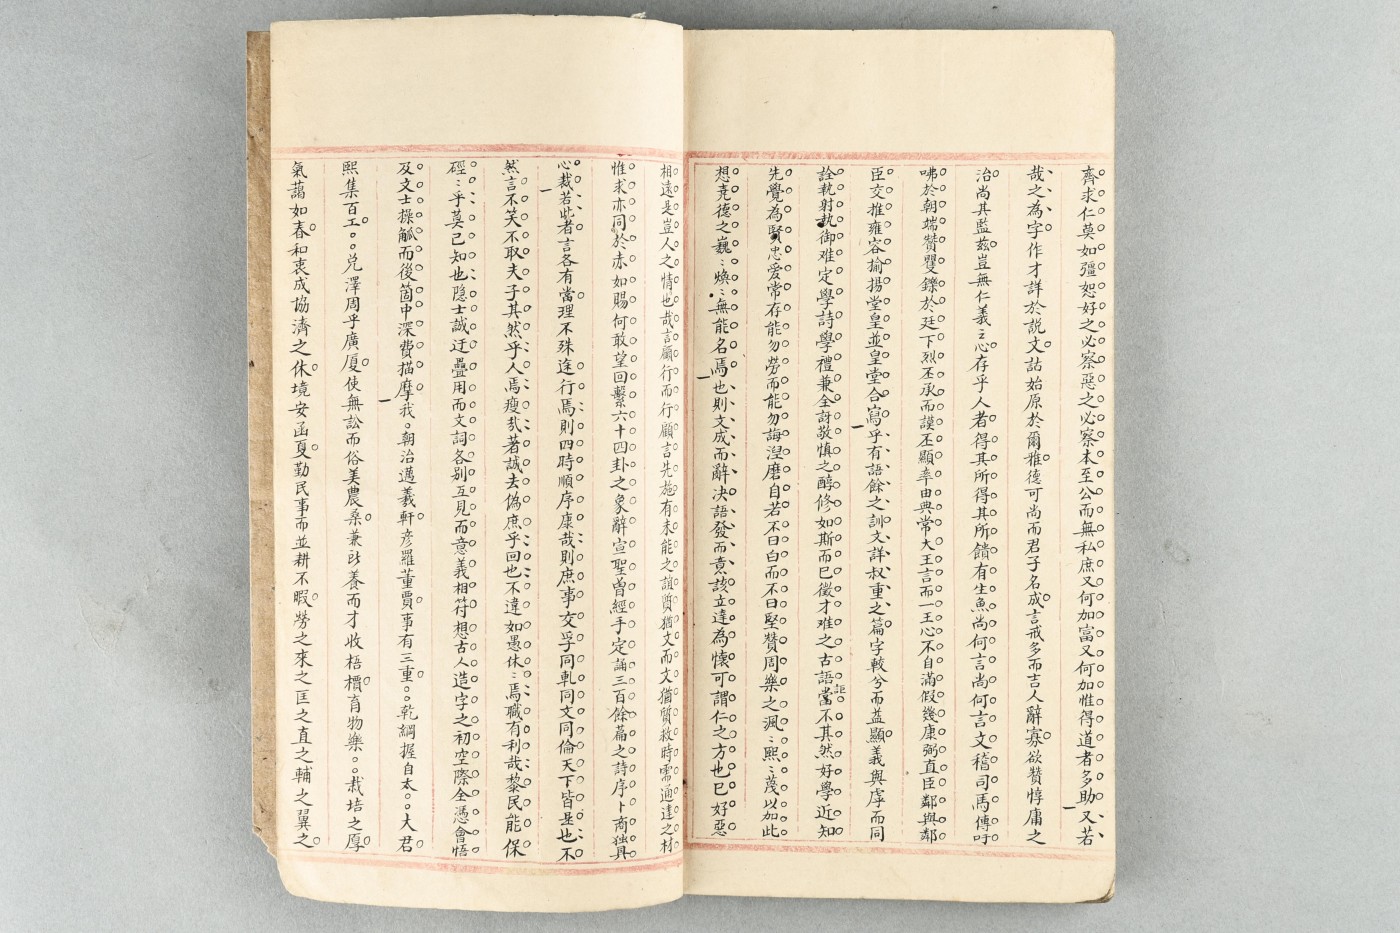 齊求仁莫如彊恕好之必察惡之必察本至公而無私庶又何加富又何加惟得道者多助又若
哉之為字作才詳於説文詁始原於爾雅德可尚而君子名成言戒多而吉人辭寡欲贊惇庸之
治尚其監兹豈無仁義之心存乎人者得其所得其所饋有生魚尚何言尚何言文稽司馬傅吁
咈於朝端贊矍鑠於廷下烈丕承而謨丕顯率由典常大王言而一王心不自滿假幾康弼直臣鄰與鄰
臣交推雍容揄揚堂皇並皇堂合寫乎有語餘之訓文詳叔重之篇字較兮而益顯義與虖而同
詮執射執御难定學詩學禮兼全訝敬慎之醇修如斯而已徵才难之古語當不其然好學近知
先覺為賢忠愛常存能勿勞而能勿誨湼磨自若不曰白而不曰堅贊周樂之渢〻熙〻蔑以加此
想尭德之巍〻煥〻無能名焉也則文成而辭决語發而意該立達為懷可謂仁之方也已好惡
相遠是豈人之情也哉言顧行而行顧言先施有未能之誼質猶文而文猶質救時需通達之材
惟求亦同於赤如賜何敢望回繫六十四卦之象辭宣聖曾經手定誦三百餘篇之詩序卜商独具
心裁若此者言各有當理不殊途行焉則四時順序康哉則庶事交孚同軋同文同倫天下皆是也不
然言不笑不取夫子其然乎人焉瘦㢤著誠去偽庶乎回也不違如愚休〻焉職有利哉黎民能保
硜〻乎莫己知也隐士誠迂疊用而文詞各别互見而意義相符想古人造字之初空際全憑會悟
及文士操觚而後箇中深費描摩我。朝治邁羲軒彦羅董賈事有三重。。乾綱握自太。。大君
熙集百工。。兑澤周乎廣厦使無訟而俗美農桑兼以養而才收梧檟育物樂。。栽培之厚
氣藹如春和衷成協濟之休境安函夏勤民事而並耕不暇勞之來之匡之直之輔之翼之